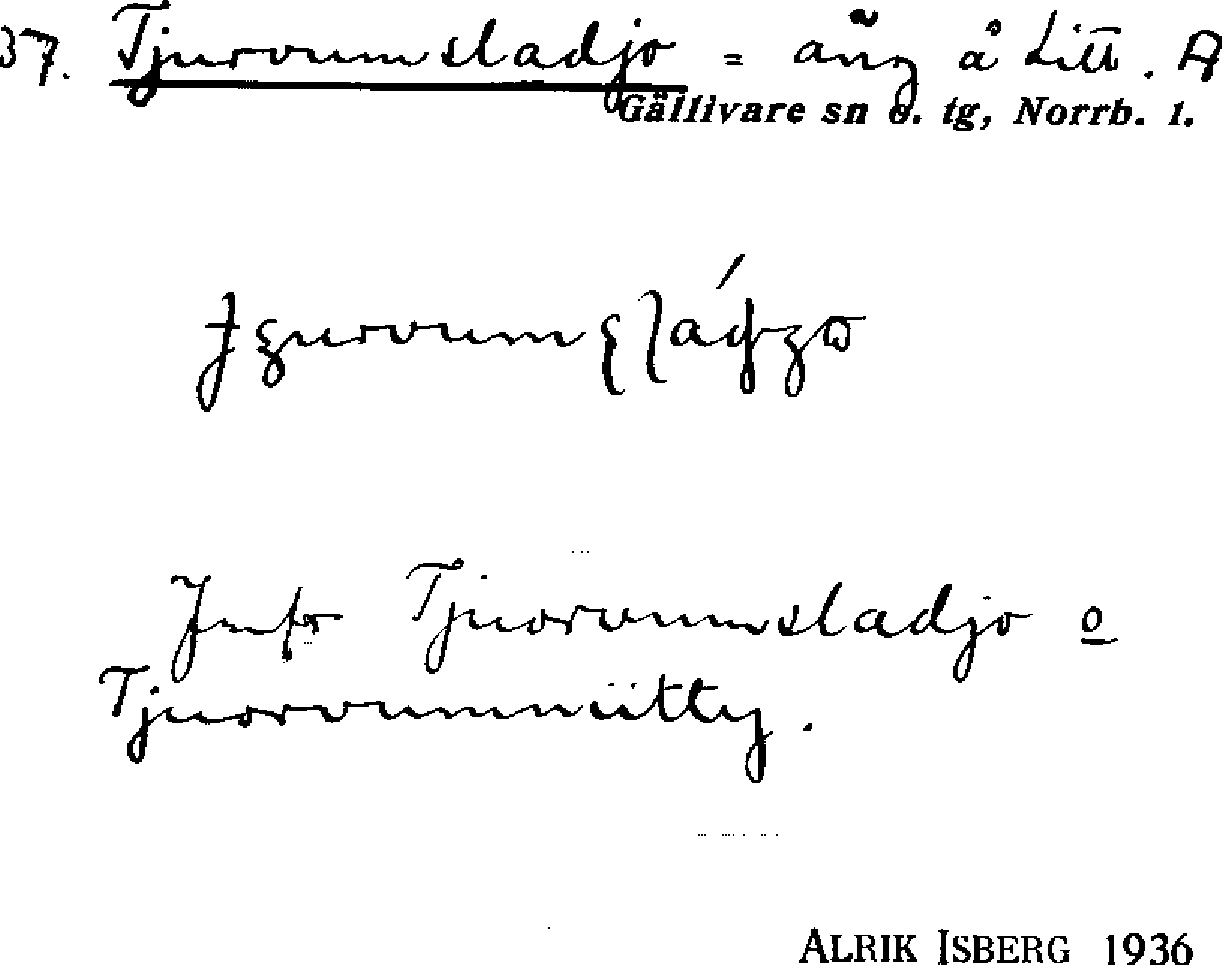 37. Tjurvumsladjo = äng å Litt. A
Gällivare sn o. tg, Norrb. l.
Jmfr Tjuorvumsladjo o
Tjuorvumniitty.
ALRIK ISBERG 1936